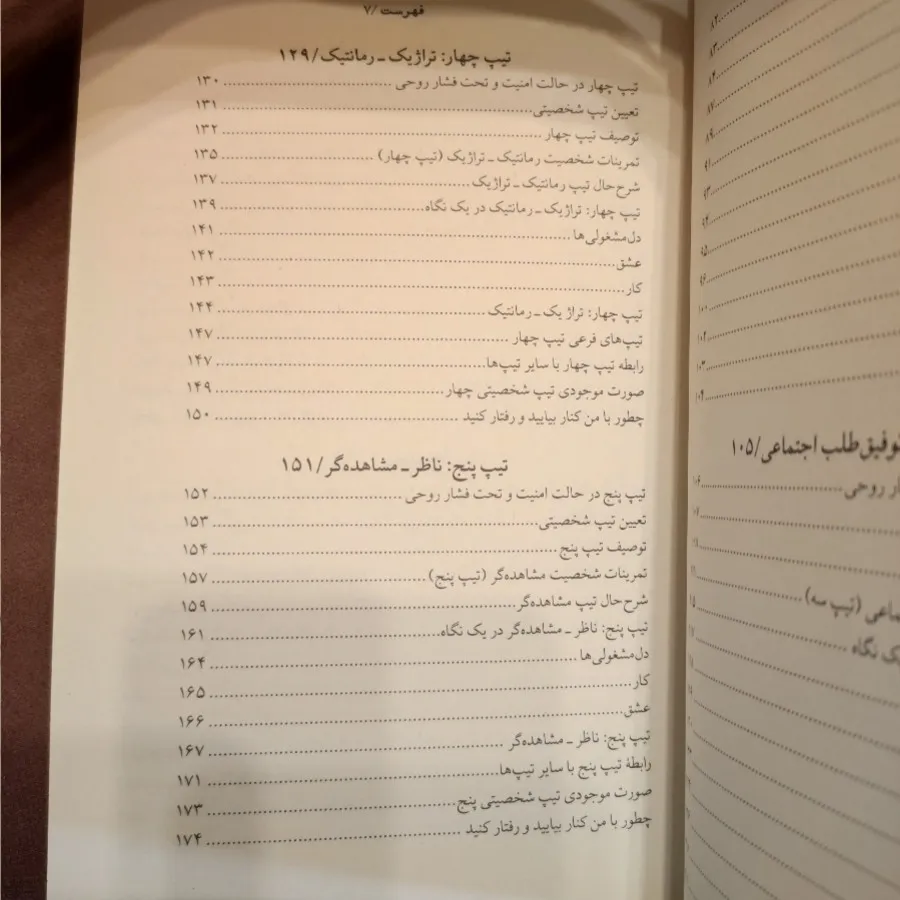 فهرست /۷
تیپ چهار: تراژیک ـ رمانتیک/۱۲۹
تیپ چهار در حالت امنیت و تحت فشار روحی ........ ۱۳۰
تعیین تیپ شخصیتی ........ ۱۳۱
توصیف تیپ چهار ........ ۱۳۲
تمرینات شخصیت رمانتیک ـ تراژیک (تیپ چهار) ........ ۱۳۵
شرح‌حال تیپ رمانتیک ـ تراژیک ........ ۱۳۷
تیپ چهار: تراژیک ـ رمانتیک در یک نگاه ........ ۱۳۹
دل‌مشغولی‌ها ........ ۱۴۱
عشق ........ ۱۴۲
کار ........ ۱۴۳
تیپ چهار: تراژ یک ـ رمانتیک ........ ۱۴۴
تیپ‌های فرعی تیپ چهار ........ ۱۴۷
رابطه تیپ چهار با سایر تیپ‌ها ........ ۱۴۷
صورت موجودی تیپ شخصیتی چهار ........ ۱۴۹
چطور با من کنار بیایید و رفتار کنید ........ ۱۵۰
تیپ پنج: ناظر ـ مشاهده‌گر/۱۵۱
تیپ پنج در حالت امنیت و تحت فشار روحی ........ ۱۵۲
تعیین تیپ شخصیتی ........ ۱۵۳
توصیف تیپ پنج ........ ۱۵۴
تمرینات شخصیت مشاهده‌گر (تیپ پنج) ........ ۱۵۷
شرح‌حال تیپ مشاهده‌گر ........ ۱۵۹
تیپ پنج: ناظر ـ مشاهده‌گر در یک نگاه ........ ۱۶۱
دل‌مشغولی‌ها ........ ۱۶۴
کار ........ ۱۶۵
عشق ........ ۱۶۶
تیپ پنج: ناظر ـ مشاهده‌گر ........ ۱۶۷
رابطهٔ تیپ پنج با سایر تیپ‌ها ........ ۱۷۱
صورت موجودی تیپ شخصیتی پنج ........ ۱۷۳
چطور با من کنار بیایید و رفتار کنید ........ ۱۷۴
۸۲
۸۳
۸۴
۸۷
۸۹
۹۱
۹۳
۹۴
۹۵
۹۶
۱۰۰
۱۰۲
۱۰۳
۱۰۴
توفیق‌طلب اجتماعی/۱۰۵
روحی ........ ۱۰۶
(تیپ سه) ........
نگاه ........